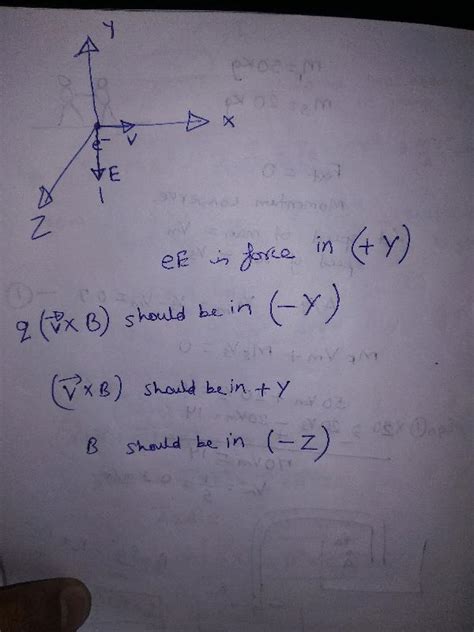 Y
X
e⁻
V
E
Z
eE is force in (+Y)
q(v⃗×B) should be in (-Y)
(v⃗×B) should be in +Y
B should be in (-Z)